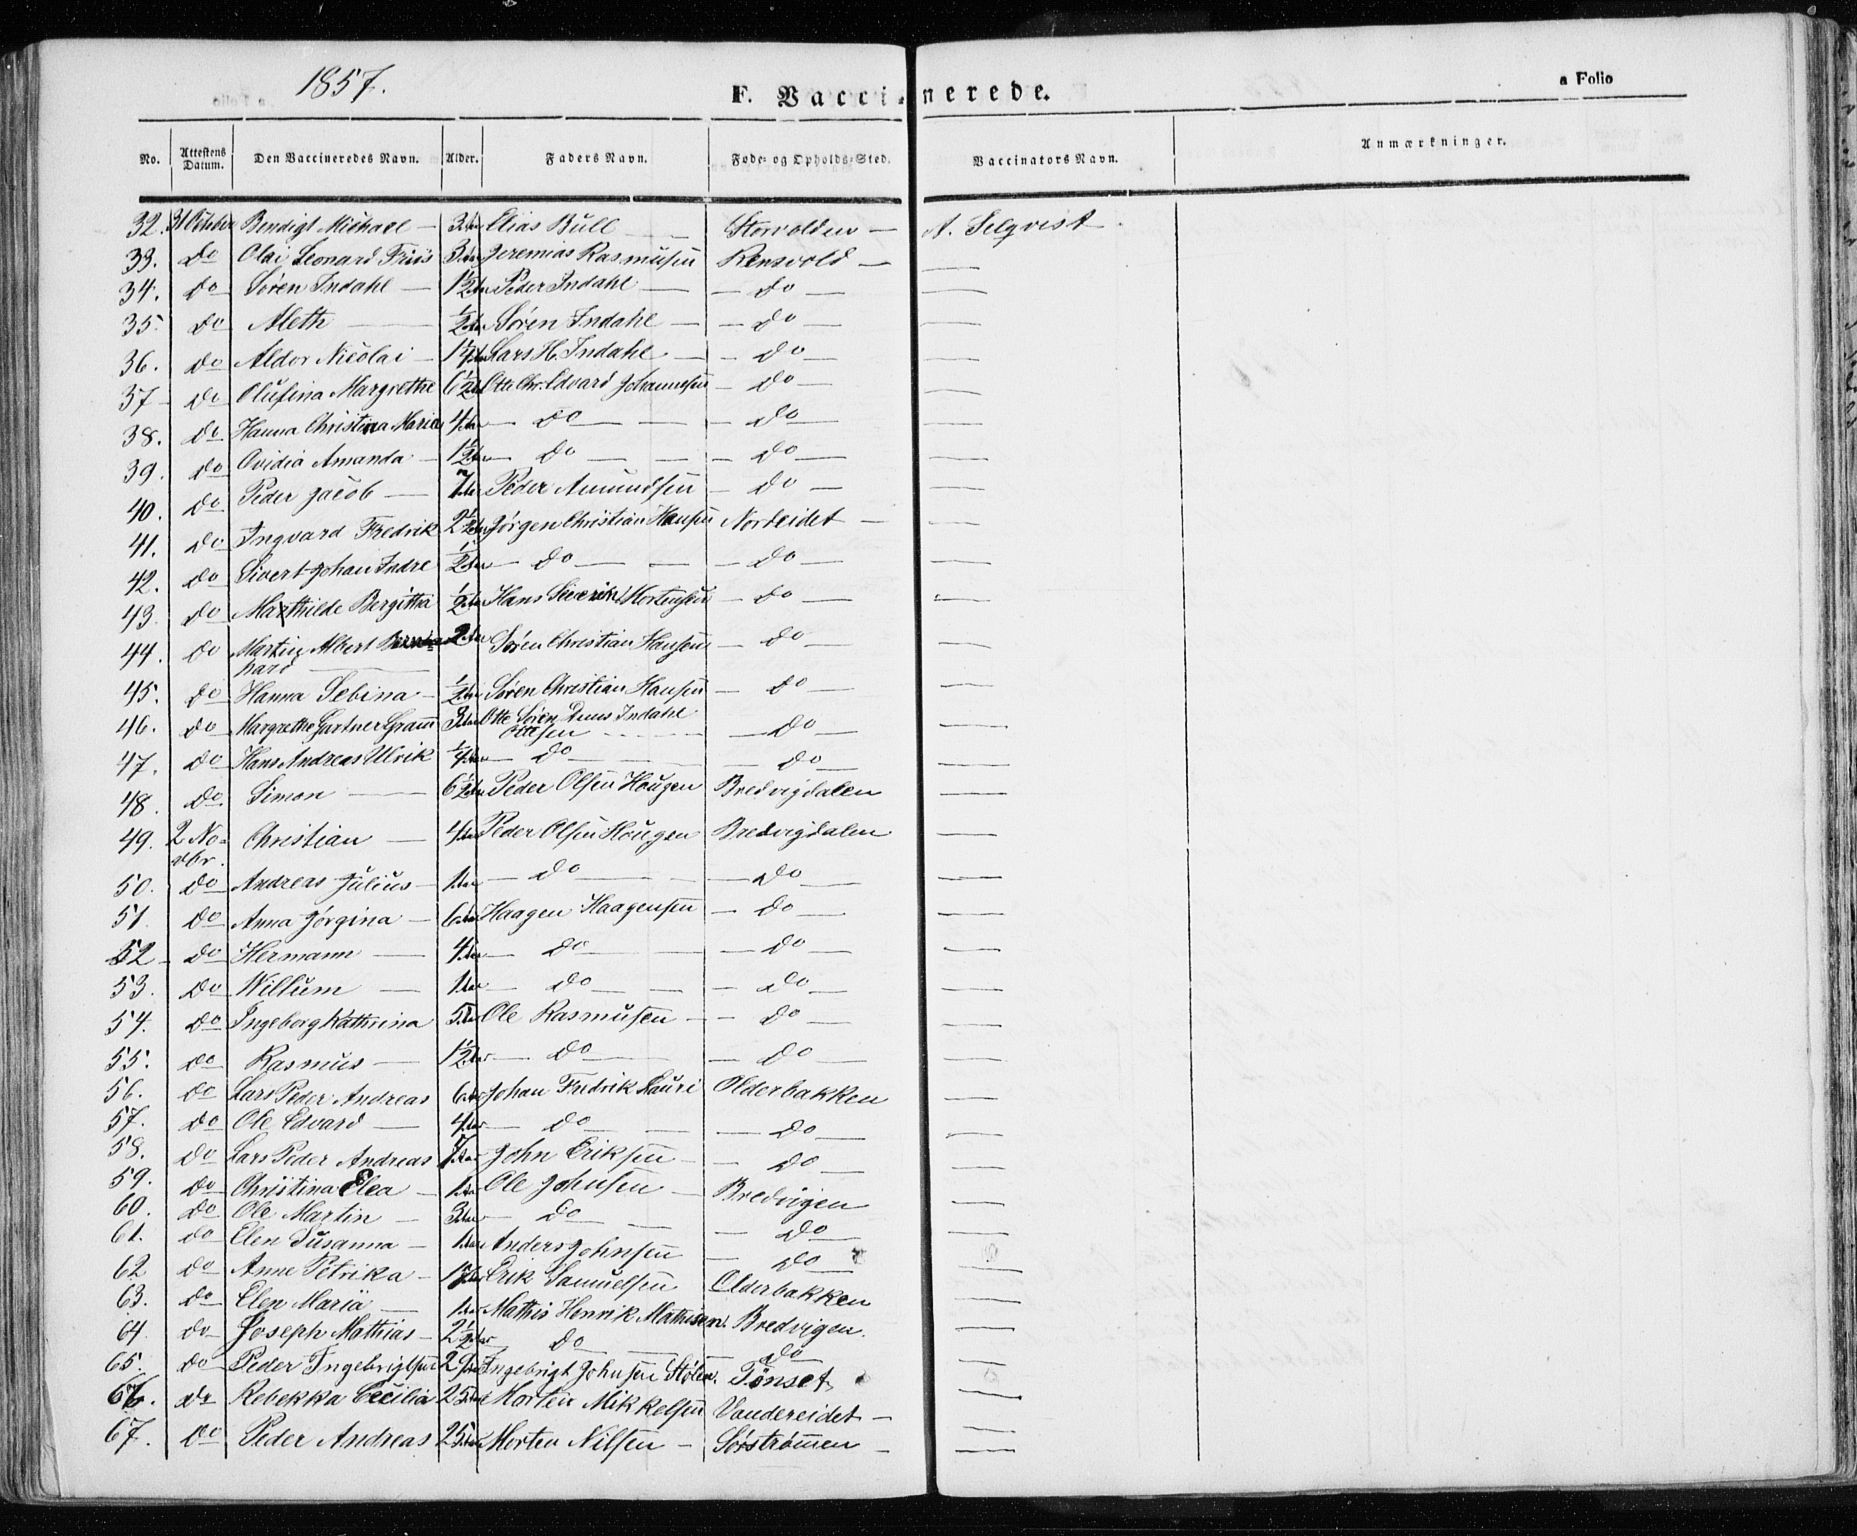 1857.
F. Vaccinerede.
a Folio
No. Attestens Datum. Den Vaccineredes Navn. Alder. Faders Navn. Føde- og Opholds-Sted. Vaccinators Navn. Anmærkninger.
32. 31 October Bendigt Michael — 3 Aar Elias Bull — Storvolden — A. Selqvist
33. Do Olai Leonard Friis 3 Aar Jeremias Rasmusen Rensvold — —
34. Do Søren Indahl — 1½ Aar Peder Indahl — — Do — —
35. Do Aleth — ½ Aar Søren Indahl — — Do — —
36. Do Aldor Nicolai — Lars H. Indahl — — Do — —
37 Do Olufina Margrethe 6½ Aar Otte Chr. Edvard Johannesen — Do — —
38. Do Hanna Christina Maria 4 Aar — Do — — Do — —
39. Do Ovidia Amanda — 1½ Aar — Do — — Do — —
40. Do Peder Jacob — 7 Aar Peder Amundsen — Do — —
41. Do Ingvard Fredrik 2½ Aar Jørgen Christian Hansen Nordeidet — —
42. Do Sivert Johan Indre ½ Aar — Do — — Do — —
43. Do Mathilde Bergitha ½ Aar Hans Severin Mortensen — Do — —
44. Do Martin Albert Bern 2 Aar Søren Christian Hansen — Do — —
hard —
45. Do Hanna Sebina — ½ Aar Søren Christian Hansen — Do — —
46. Do Margrethe Gartner Gram 3 Aar Otte Søren Duus Indahl
Ottesen — — Do — —
47. Do Hans Andreas Ulrik ¼ Aar — Do — — Do — —
48. Do Simon — 6½ Aar Peder Olsen Hougen Bredvigdalen —
49. 2 No- Christian — 4 Aar Peder Olsen Hougen Bredvigdalen —
vbr.
50. Do Andreas Julius — 1 Aar — Do — — Do — —
51. Do Anna Jørgina — 6 Aar Haagen Haagensen — Do — —
52 Do Hermann — 4 Aar — Do — — Do — —
53. Do Willum — 1 Aar — Do — — Do — —
54. Do Ingeborg Kathrina 5 Aar Ole Rasmusen — Do — —
55. Do Rasmus — 1½ Aar — Do — — Do — —
56. Do Lars Peder Andreas 6 Aar Johan Fredrik Lauri Olderbakken —
57. Do Ole Edvard — 4 Aar — Do — — Do — —
58. Do Lars Peder Andreas Aar John Eriksen — — Do — —
59. Do Christina Elea — 1 Aar Ole Johnsen — Bredvigen —
60. Do Ole Martin — 3 Aar — Do — — Do —
61. Do Elen Susanna — 1 Aar Anders Johnsen — Do —
62. Do Anne Petrika — Erik Samuelsen Olderbakken —
63. Do Elen Maria — 1 Aar Mathis Henrik Mathisen. Bredvigen. —
64. Do Joseph Mathias — 2½ Aar — Do — — Do —
65. Do Peder Ingebrigtsen Ingebrigt Johnsen Stølen. Tønset —
66. Do Rebekka Cecilia 25 Aar Morten Mikkelsen Vandereidet — —
67. Do Peder Andreas 25 Aar Morten Nilsen — Sørstrømmen — —